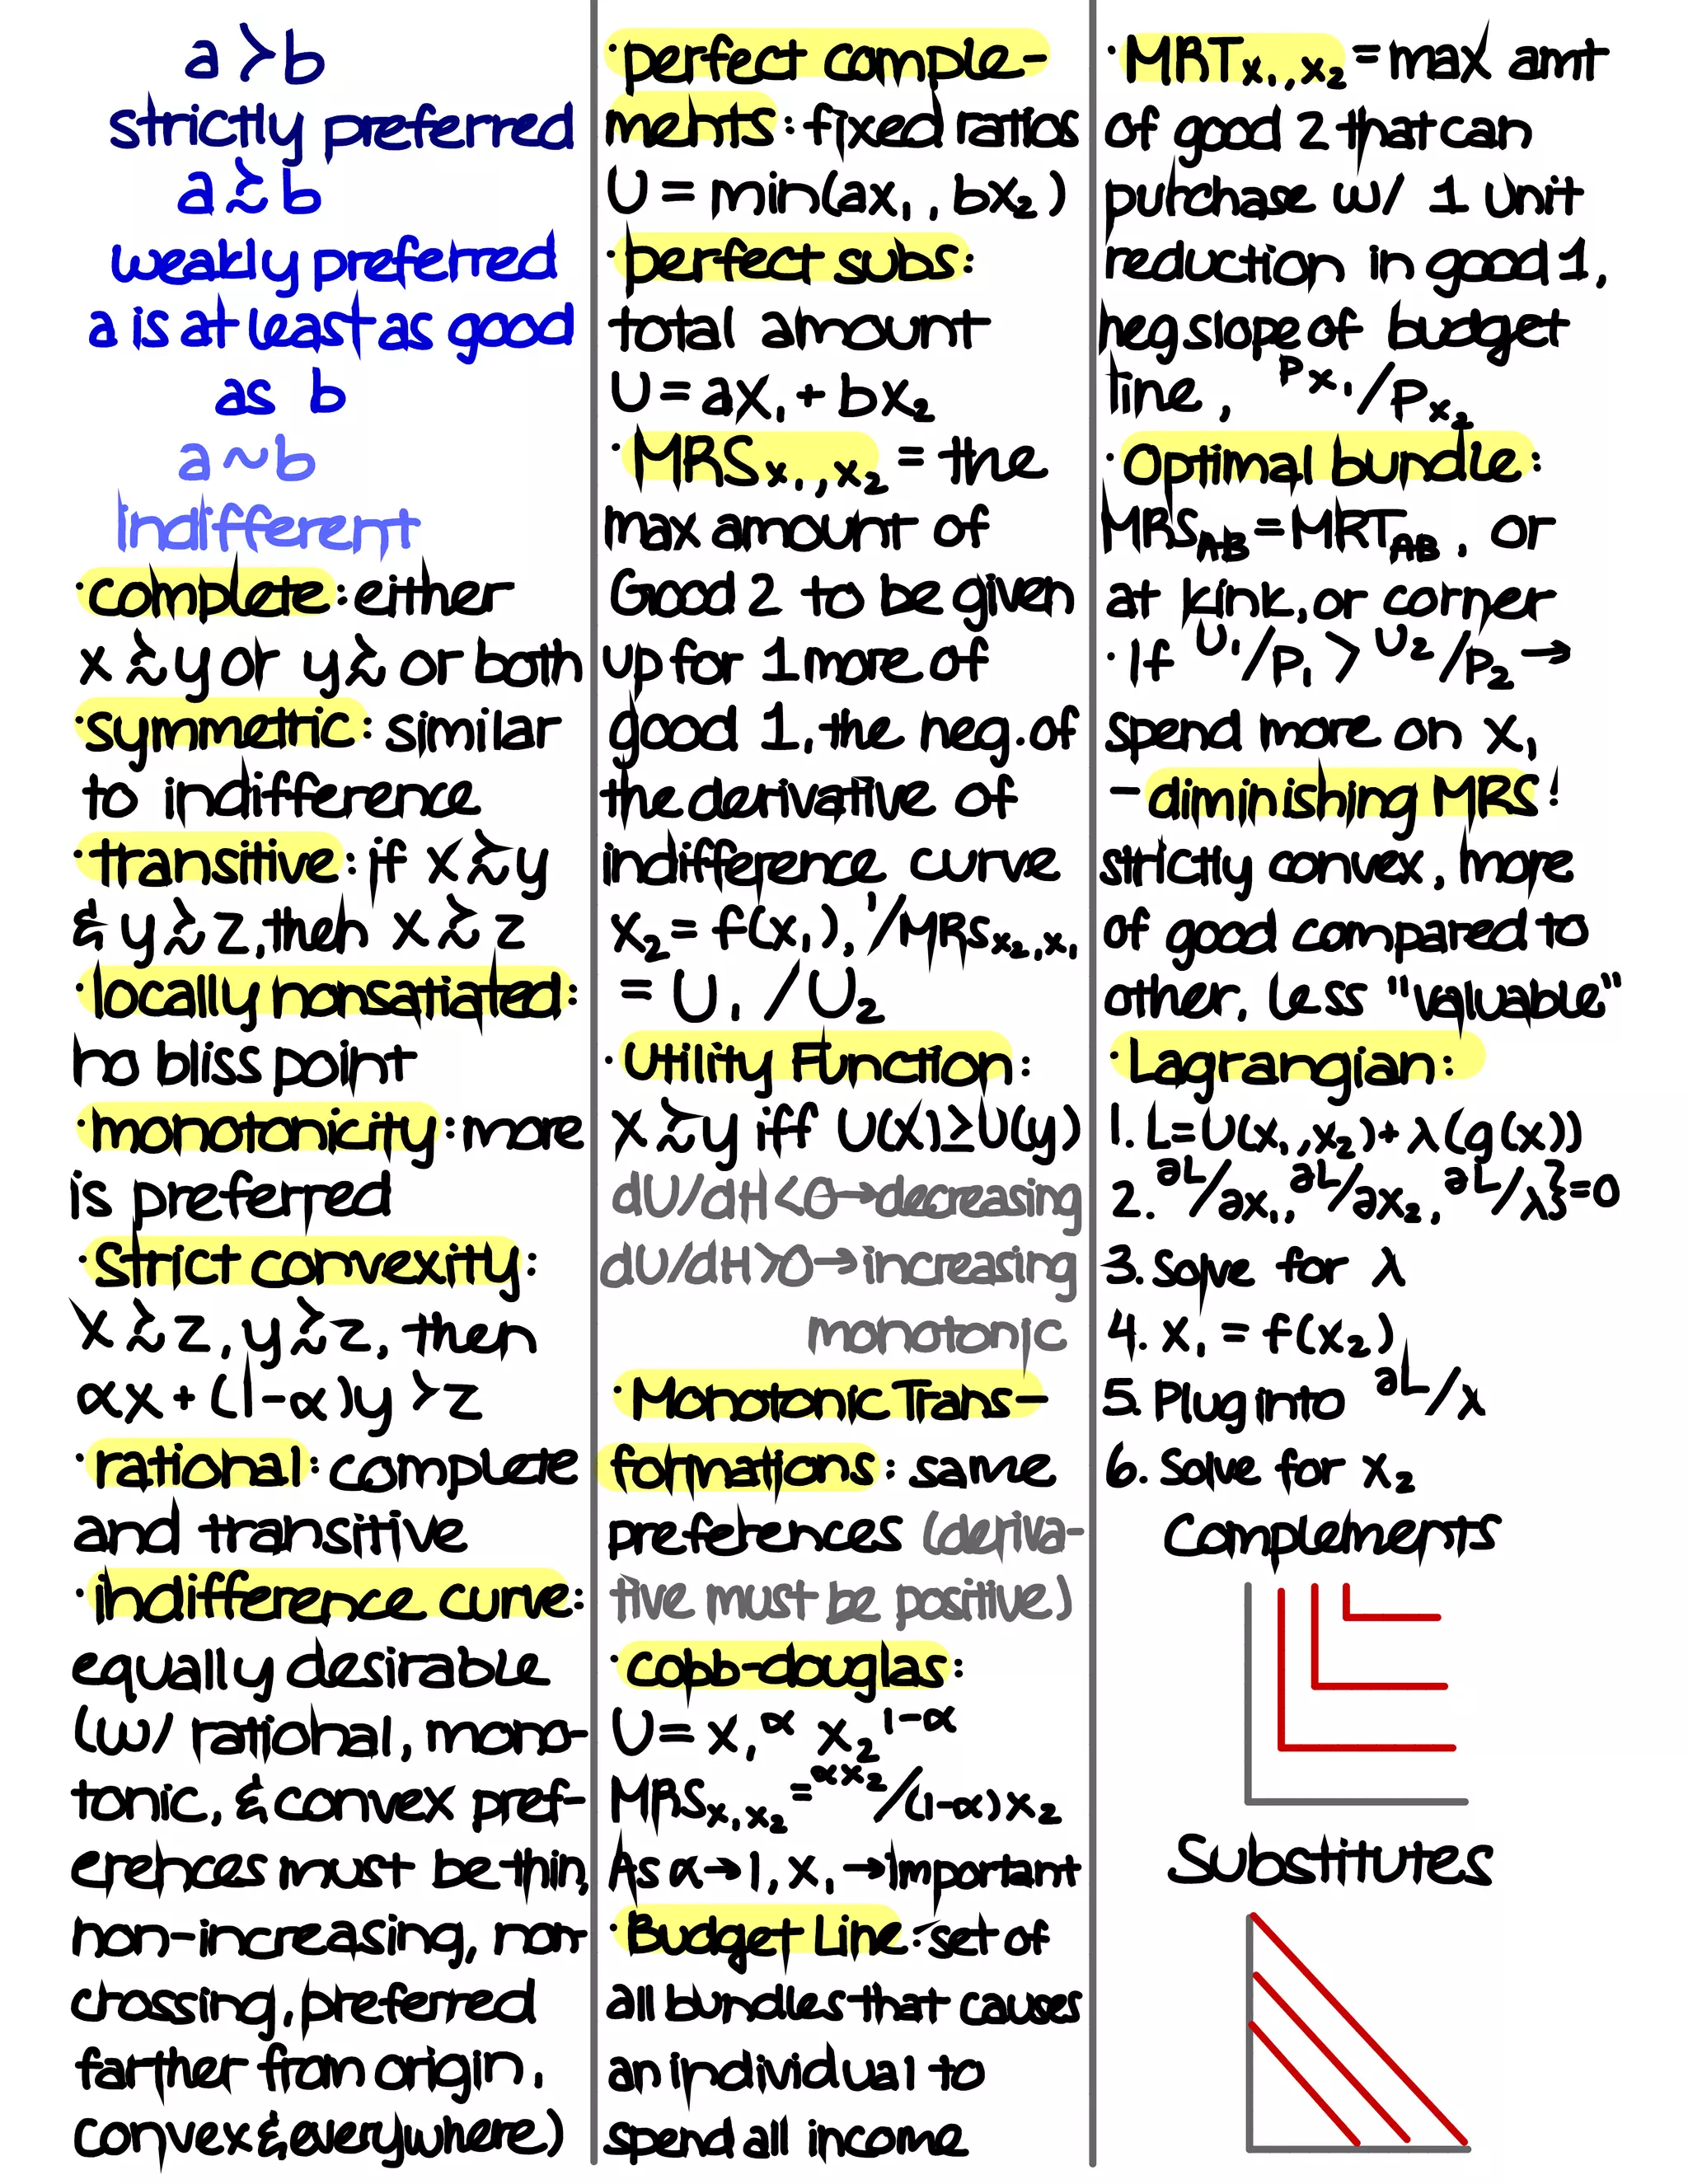 a ≻ b
strictly preferred
a ≿ b
weakly preferred
a is at least as good
as b
a ~ b
indifferent
· complete: either
x ≿ y or y ≿ or both
· symmetric: similar
to indifference
· transitive: if x ≿ y
& y ≿ z, then x ≿ z
· locally nonsatiated:
no bliss point
· monotonicity: more
is preferred
· Strict convexity:
x ≿ z, y ≿ z, then
αx + (1-α)y ≻ z
· rational: complete
and transitive
· indifference curve:
equally desirable
(w/ rational, mono-
tonic, & convex pref-
erences must be thin,
non-increasing, non-
crossing, preferred
farther from origin,
convex & everywhere)
· perfect comple-
ments: fixed ratios
U = min(ax₁, bx₂)
· perfect subs:
total amount
U = ax₁ + bx₂
· MRSx₁,x₂ = the
max amount of
Good 2 to be given
up for 1 more of
good 1, the neg. of
the derivative of
indifference curve
x₂ = f(x₁), 1/MRSx₂,x₁
= U₁/U₂
· Utility Function:
x ≿ y iff U(x) ≥ U(y)
dU/dH < 0 → decreasing
dU/dH > 0 → increasing
monotonic
· Monotonic Trans-
formations: same
preferences (deriva-
tive must be positive)
· cobb-douglas:
U = x₁^α x₂^1-α
MRSx₁x₂ = αx₂/(1-α)x₂
As α → 1, x₁ → important
· Budget Line: set of
all bundles that causes
an individual to
spend all income
· MRTx₁,x₂ = max amt
of good 2 that can
purchase w/ 1 unit
reduction in good 1,
neg slope of budget
line, Px₁/Px₂
· Optimal bundle:
MRS_AB = MRT_AB, or
at kink, or corner
· If U₁/P₁ > U₂/P₂ →
spend more on x₁
- diminishing MRS:
strictly convex, more
of good compared to
other, less "valuable"
· Lagrangian:
1. L = U(x₁,x₂) + λ(g(x))
2. ∂L/∂x₁, ∂L/∂x₂, ∂L/λ} = 0
3. Solve for λ
4. x₁ = f(x₂)
5. Plug into ∂L/λ
6. Solve for x₂
Complements
Substitutes